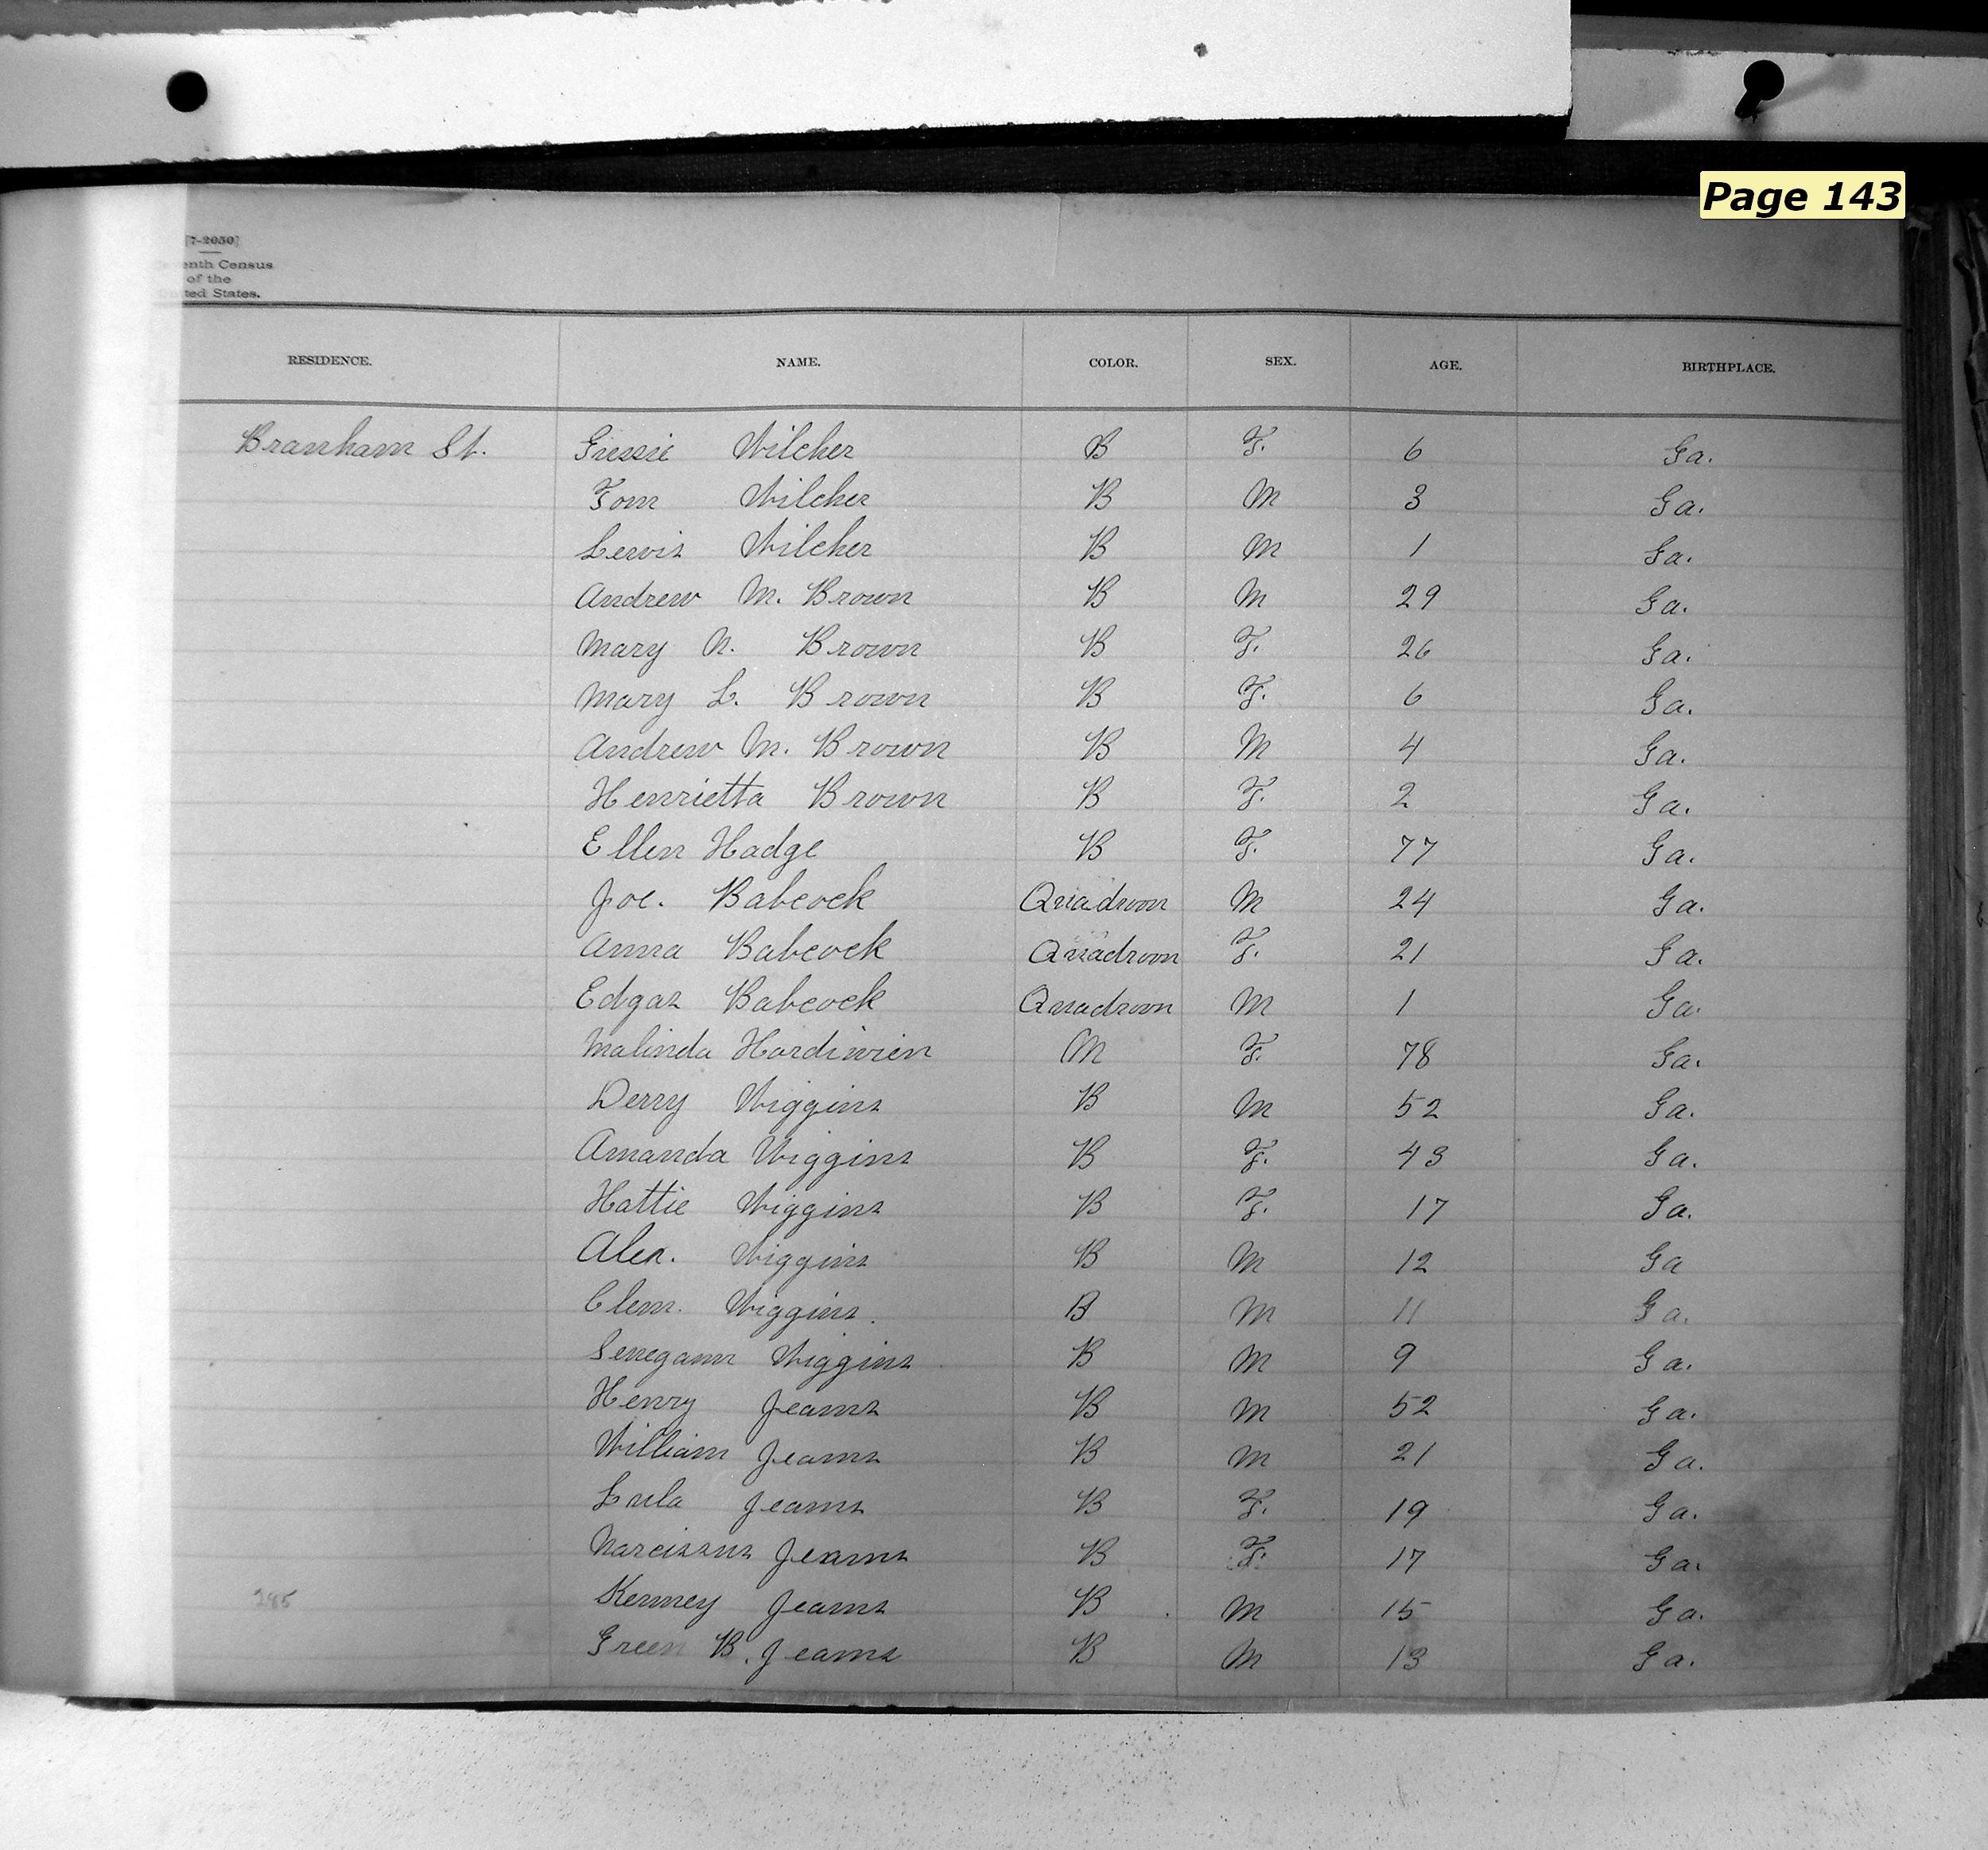 Page 143
[7-2050]
enth Census
of the
ted States.
RESIDENCE. NAME. COLOR. SEX. AGE. BIRTHPLACE.
Branham St. Gussie Wilcher B F. 6 Ga.
Tom Wilcher B M 3 Ga.
Lewis Wilcher B M 1 Ga.
Andrew M. Brown B M 29 Ga.
Mary N. Brown B F. 26 Ga.
Mary L. Brown B F. 6 Ga.
Andrew M. Brown B M 4 Ga.
Henrietta Brown B F. 2 Ga.
Ellen Hadge B F. 77 Ga.
Joe. Babcock Quadroon M 24 Ga.
Anna Babcock Quadroon F. 21 Ga.
Edgar Babcock Quadroon M 1 Ga.
Malinda M F. 78 Ga.
Derry Wiggins B M 52 Ga.
Amanda Wiggins B F. 43 Ga.
Hattie Wiggins B F. 17 Ga.
Alex. Wiggins B M 12 Ga
Clem. Wiggins. B M 11 Ga.
Senegamr Wiggins B M 9 Ga.
Henry Jeams B M 52 Ga.
William Jeams B M 21 Ga.
Lula Jeams B F. 19 Ga.
Narcissus Jeams B F. 17 Ga.
285 Kenney Jeams B M 15 Ga.
Green B. Jeams B M 13 Ga.